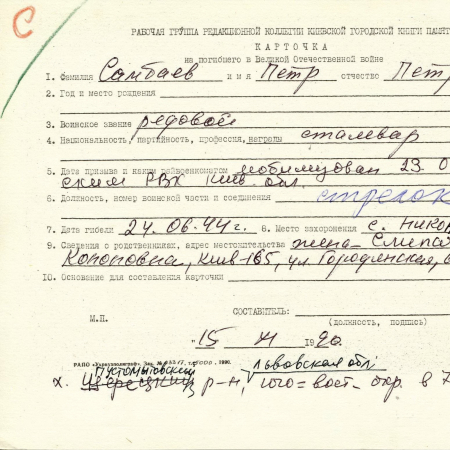 С
РАБОЧАЯ ГРУППА РЕДАКЦИОННОЙ КОЛЛЕГИИ КИЕВСКОЙ ГОРОДСКОЙ КНИГИ ПАМЯТ
КАРТОЧКА
на погибшего в Великой Отечественной войне
1. Фамилия Самбаев имя Петр отчество Петр
2. Год и место рождения
3. Воинское звание рядовой
4. Национальность, партийность, профессия, награды сталевар
5. Дата призыва и каким райвоенкоматом мобилизован 23.0
ским РВК Киев. обл.
6. Должность, номер воинской части и соединения стрелок
7. Дата гибели 24.06.44г. 8. Место захоронения с. Никор
9. Сведения о родственниках, адрес местожительства жена - Слипа
Кононовна, Киев-165, ул. Городнянская,
10. Основание для составления карточки
СОСТАВИТЕЛЬ:
М.П. (должность, подпись)
"15" XI 1990.
РАПО «Укрвузполиграф». Зак. 1990.
Пустомытовский Львовская обл
х. р-н, юго-вост. окр. в 7